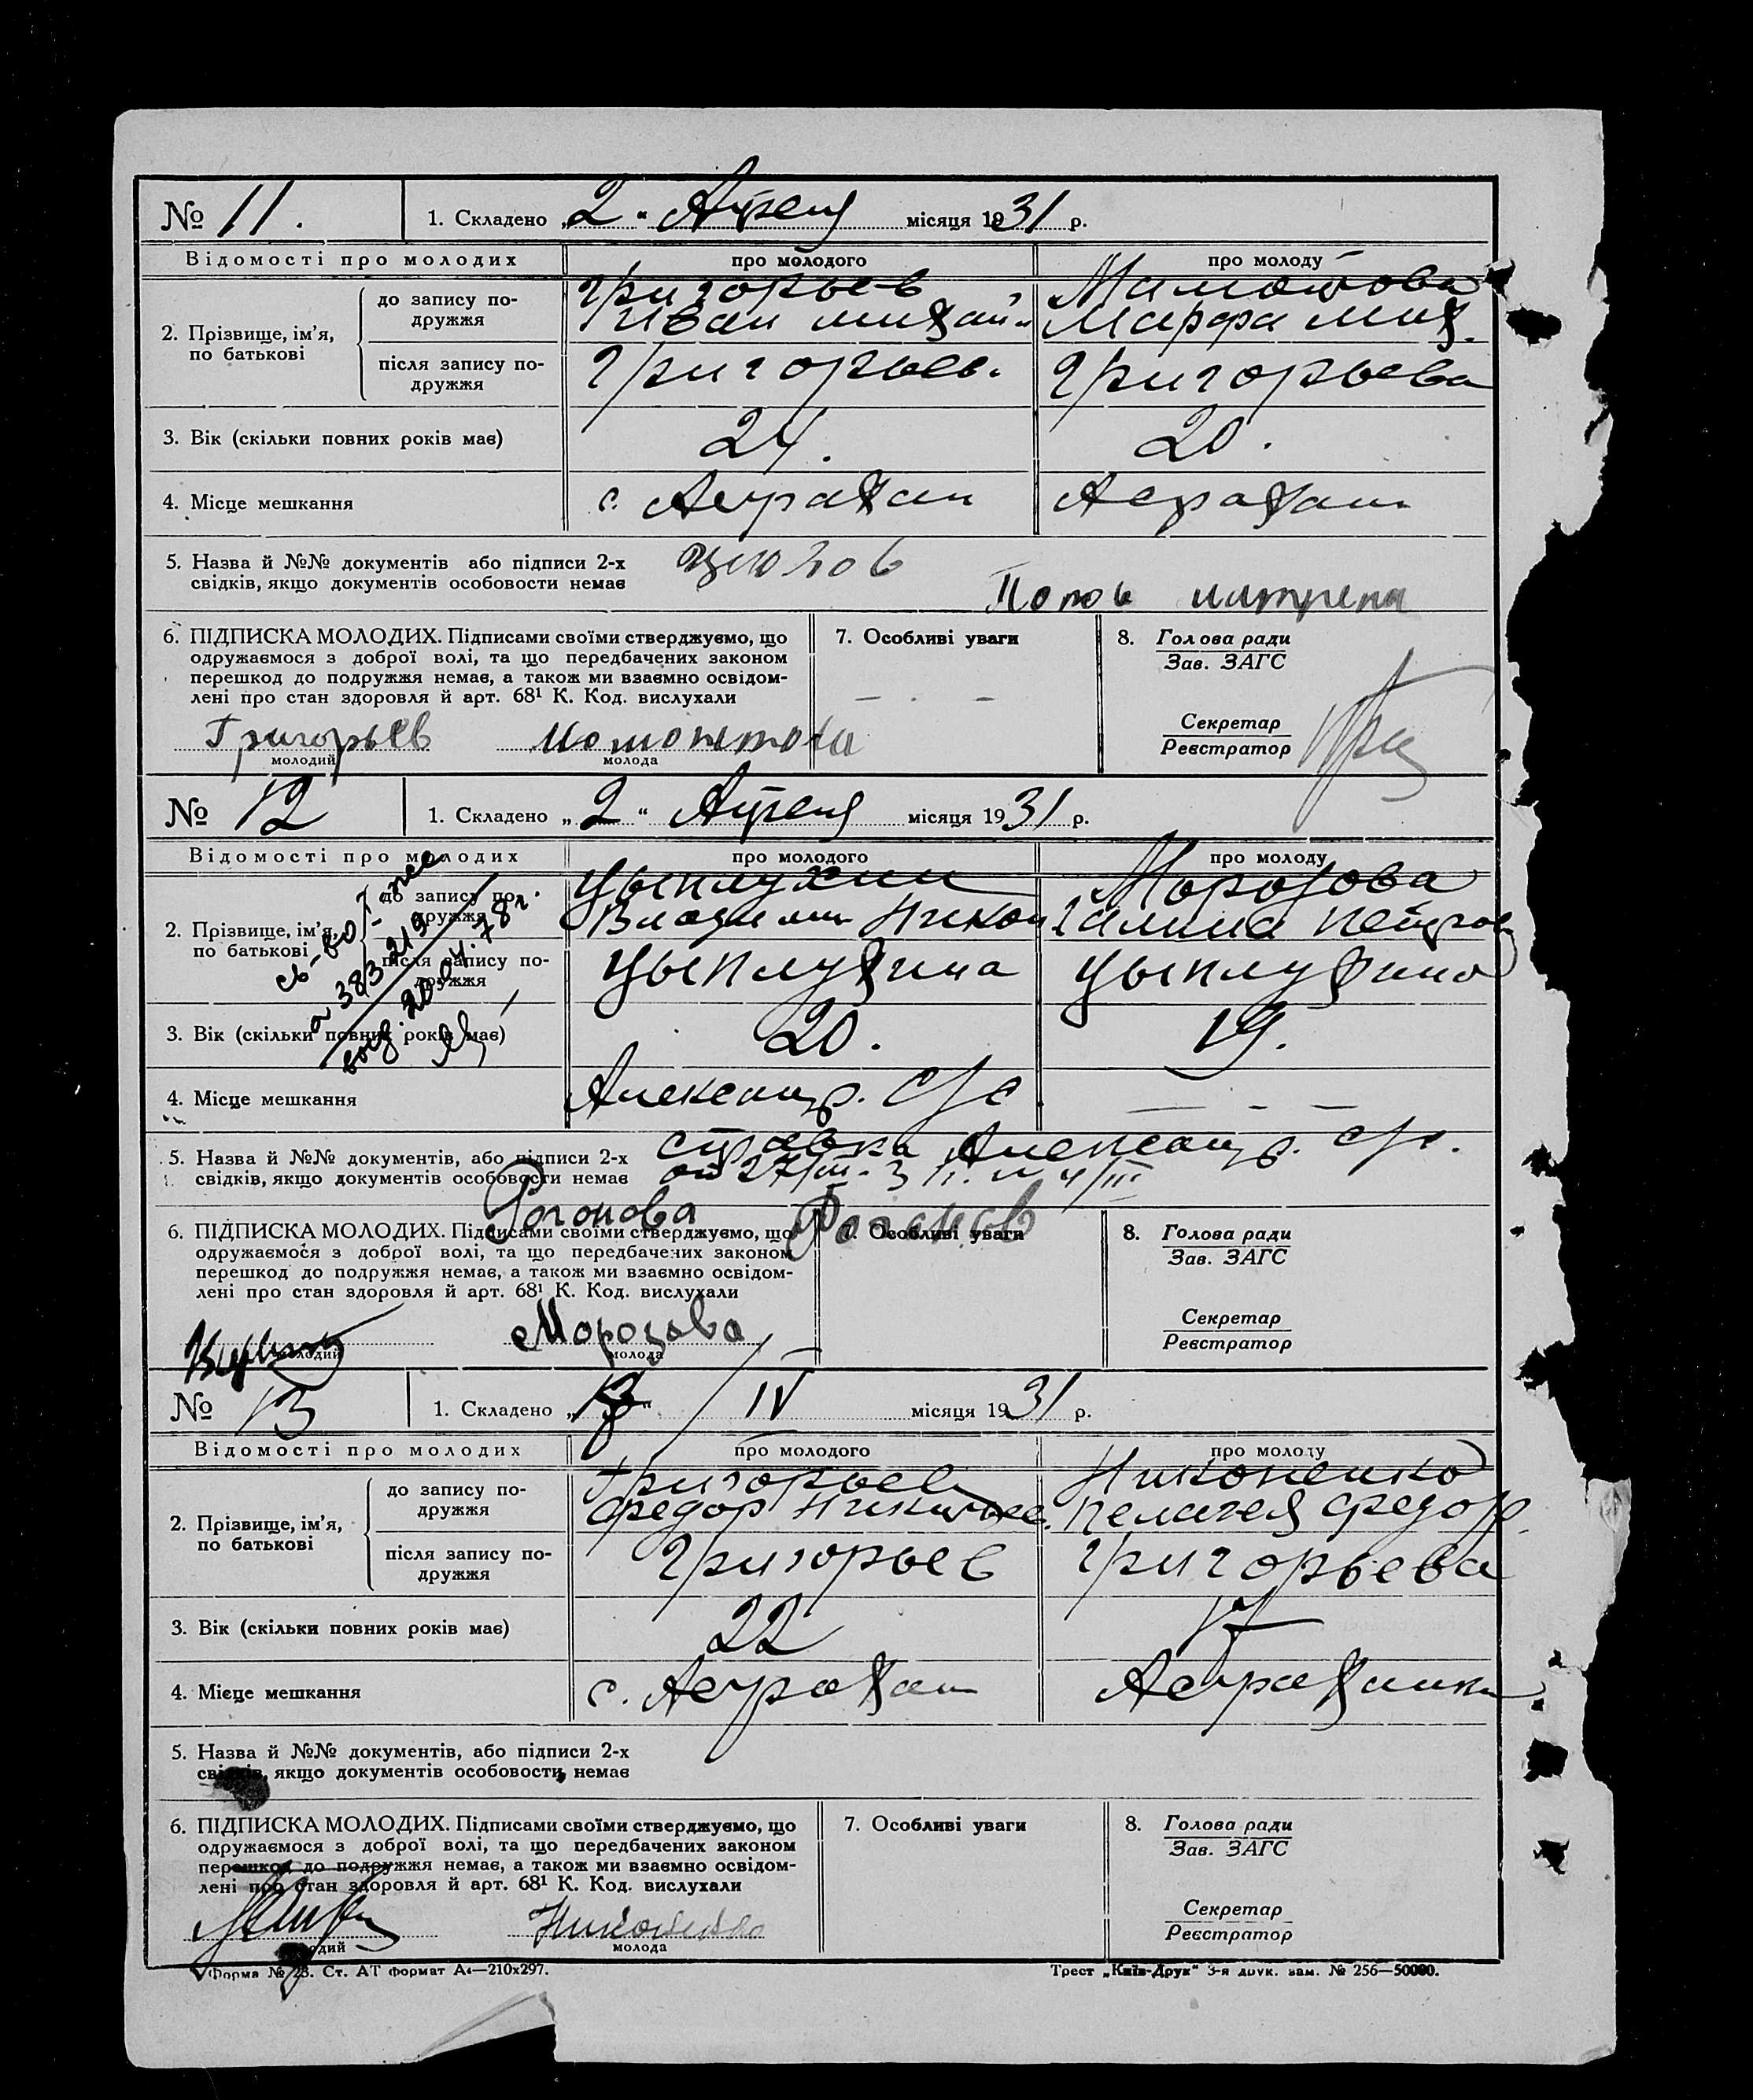 № 11. 1. Складено „2“ Апреля місяця 1931 р.
Відомості про молодих про молодого про молоду
2. Прізвище, ім'я, по батькові
до запису подружжя
Григорьев
Иван Михай.
Марфа Мих.
після запису подружжя
Григорьев. Григорьева
3. Вік (скільки повних років має) 24. 20.
4. Місце мешкання с. Астрахан Астрахан
5. Назва й №№ документів або підписи 2-х
свідків, якщо документів особовости немає
Попов
6. ПІДПИСКА МОЛОДИХ. Підписами своїми стверджуємо, що
одружаємося з доброї волі, та що передбачених законом
перешкод до подружжя немає, а також ми взаємно освідом-
лені про стан здоровля й арт. 68¹ К. Код. вислухали
Григорьев
молодий молода
7. Особливі уваги
8. Голова ради
Зав. ЗАГС
Секретар
Реєстратор
№ 12 1. Складено „2“ Апреля місяця 1931 р.
Відомості про молодих про молодого про молоду
св-во
383 219
выд. 20.04.78 г.
2. Прізвище, ім'я, по батькові
до запису подружжя
Цыплухин Морозова
Владимир Никол. Галина Петров
після запису подружжя
Цыплухина Цыплухина
3. Вік (скільки повних років має) 20. 19.
4. Місце мешкання Александр. С/с. — - —
5. Назва й №№ документів, або підписи 2-х
свідків, якщо документів особовости немає
справка Александр. с/с.
от 27/III-31 г. № 4/III
6. ПІДПИСКА МОЛОДИХ. Підписами своїми стверджуємо, що
одружаємося з доброї волі, та що передбачених законом
перешкод до подружжя немає, а також ми взаємно освідом-
лені про стан здоровля й арт. 68¹ К. Код. вислухали
Морозова
молодий молода
7. Особливі уваги
8. Голова ради
Зав. ЗАГС
Секретар
Реєстратор
№ 13 1. Складено IV місяця 1931 р.
Відомості про молодих про молодого про молоду
2. Прізвище, ім'я, по батькові
до запису подружжя
Григорьев Никоненко
Федор Пелагея Федор.
після запису подружжя
Григорьев Григорьева
3. Вік (скільки повних років має) 22 17
4. Місце мешкання с. Астрахан Астраханка
5. Назва й №№ документів, або підписи 2-х
свідків, якщо документів особовости немає
6. ПІДПИСКА МОЛОДИХ. Підписами своїми стверджуємо, що
одружаємося з доброї волі, та що передбачених законом
перешкод до подружжя немає, а також ми взаємно освідом-
лені про стан здоровля й арт. 68¹ К. Код. вислухали
Никоненко
молодий молода
7. Особливі уваги
8. Голова ради
Зав. ЗАГС
Секретар
Реєстратор
Форма № 23. Ст. АТ формат А₄—210x297. Трест „Київ-Друк“ 3-я друк. зам. № 256—50000.